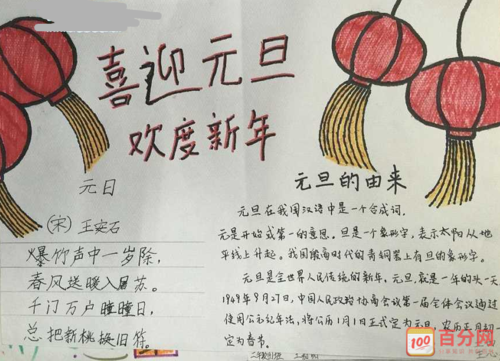 喜迎元旦
欢度新年
元日
(宋) 王安石
爆竹声中一岁除,
春风送暖入屠苏。
千门万户瞳瞳日,
总把新桃换旧符。
元旦的由来
元旦在我国汉语中是一个合成词。
元是开始或第一的意思。旦是一个象形字,表示太阳从地
平线上升起。我国殷商时代的青铜器上有旦的象形字。
元旦是全世界人民传统的新年。元旦,就是一年的头一天
1949年9月27日,中国人民政治协商会议第一届全体会议通过
使用公元纪年法,将公历1月1日正式定为元旦,农历正月初一
定为春节。
100 百分网